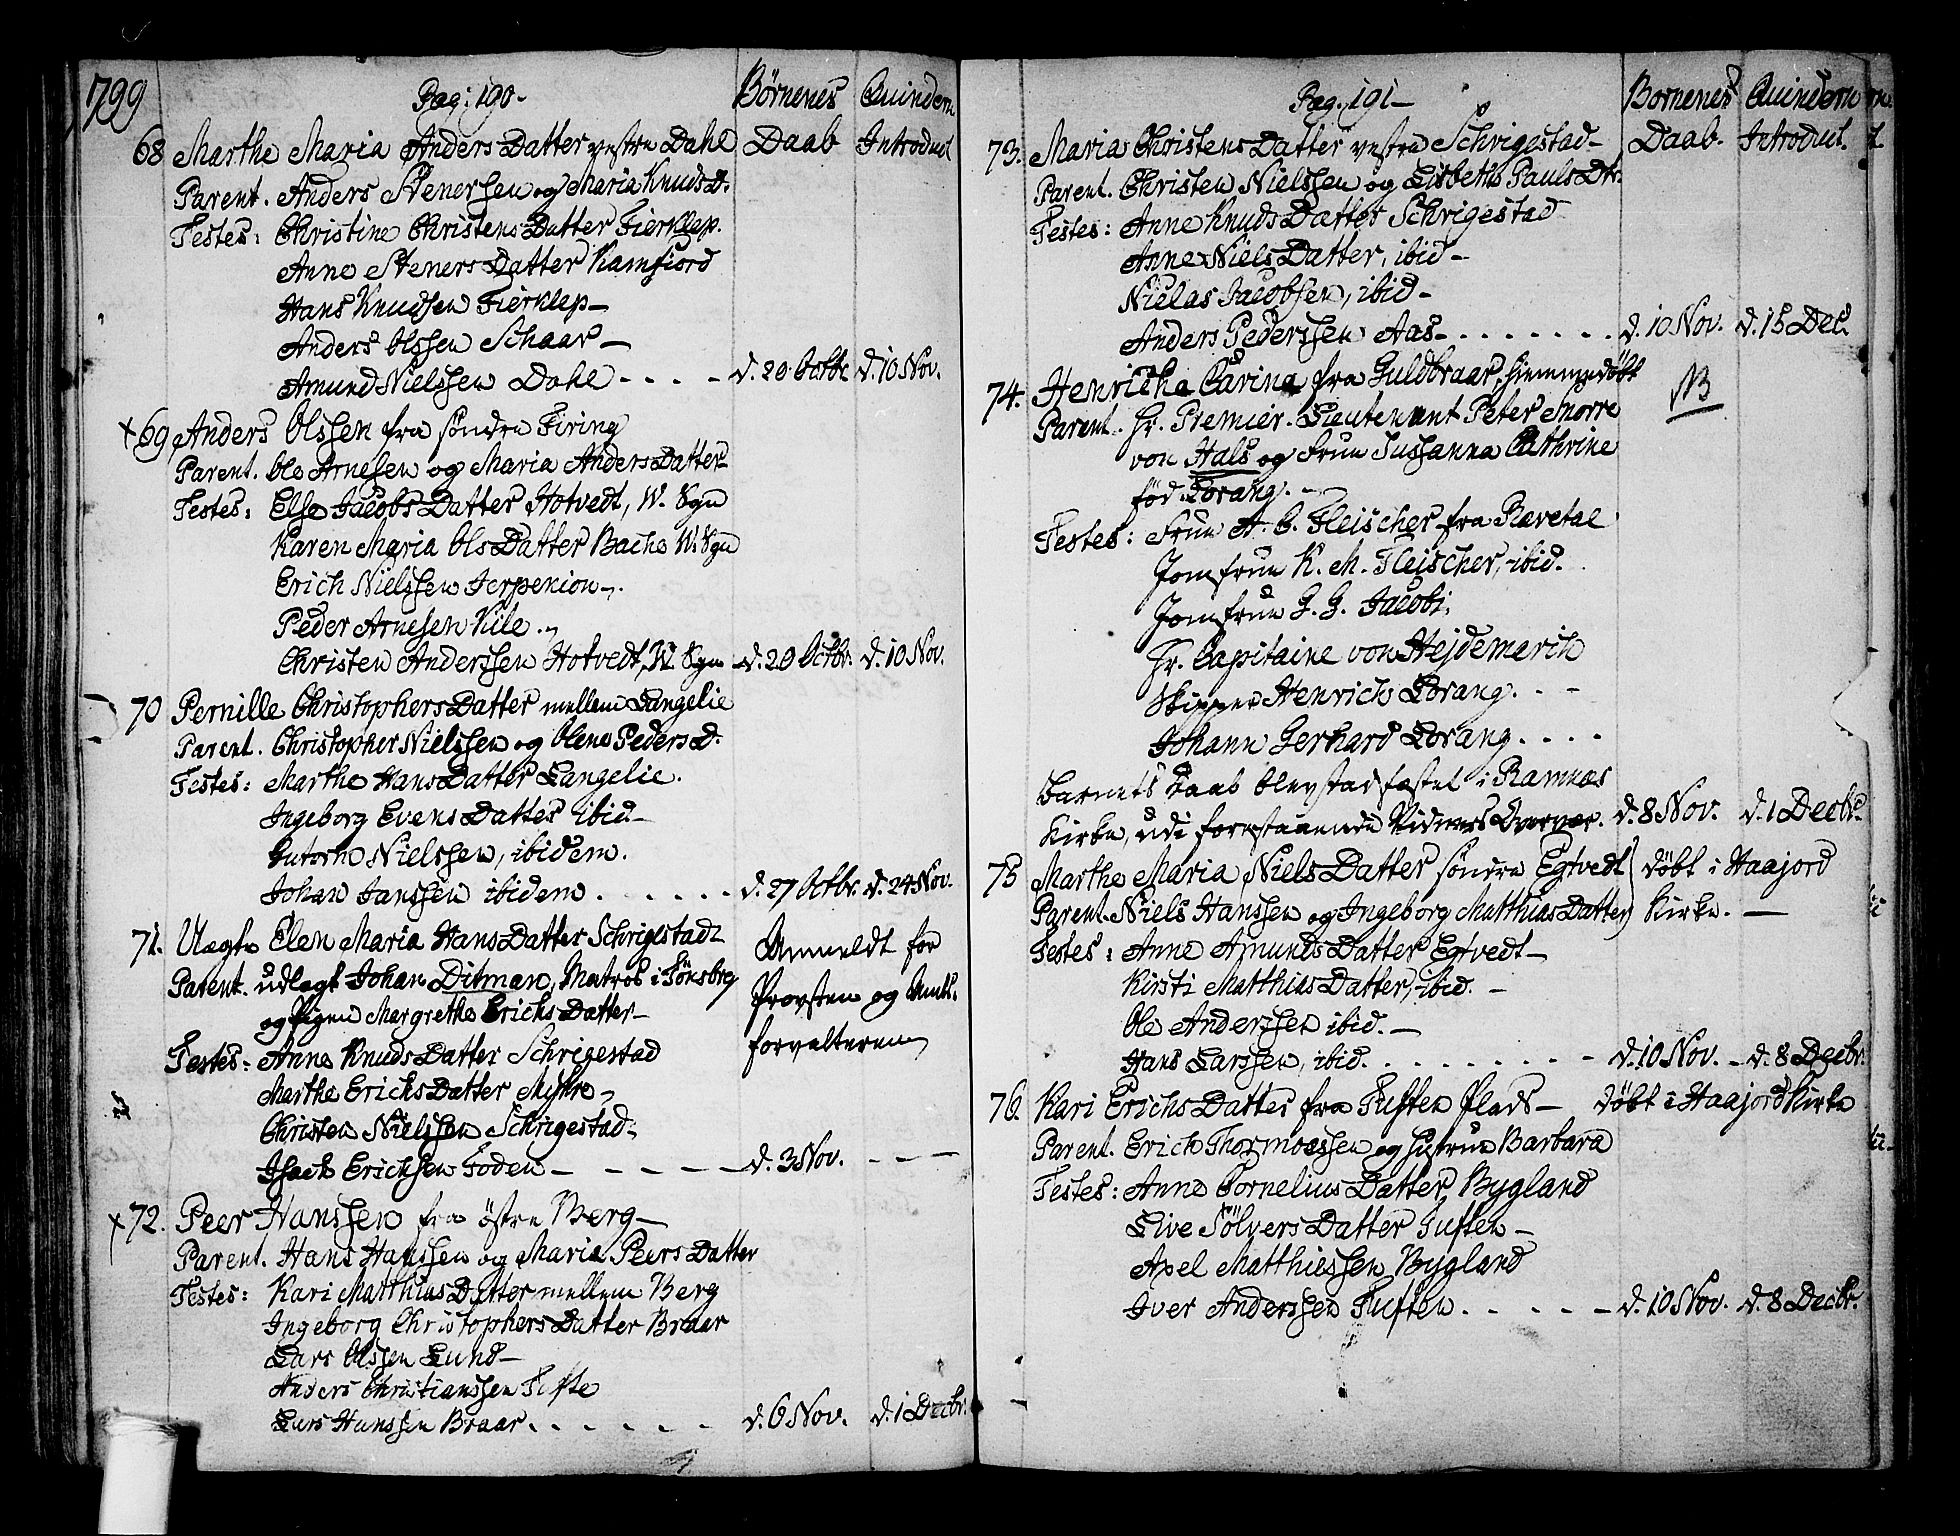 1799
Pag: 190.
Börnenes Daab
Quindern Introduct
68 Marthe Maria Anders Datter vestre Dahl
Parent. Anders Stenersen og Maria Knuds D.
Testes: Christine Christens Datter Fierklep.
Anne Steners Datter Kamfiord
Hans Knudsen Fierklep
Anders Olssen Schaar
Amund Nielssen Dahl - - - - d. 20 Octbr. d. 10 Nov.
+69 Anders Olssen fra söndre Firing
Parent. Ole Arnesen og Maria Anders Datter
Testes: Else Jacobs Datter Hotvedt, W. Sgn
Karen Maria Ols Datter Bache W. Sgn
Erich Nielssen Jerpekion
Peder Arnesen Kile
Christen Anderssen Hotvedt, W. Sgn d. 20 Octbr. d. 10 Nov.
70 Pernille Christophers Datter mellem Langelie
Parent. Christopher Nielssen og Olene Peders D.
Testes: Marthe Hans Datter Langelie.
Ingeborg Evens Datter ibid
Nielssen, ibidem.
Johan Janssen ibidem . . . . . . d. 27 Octbr. d. 24 Nov.
71. Uægte Elen Maria Hans Datter Schrigestad
Parent. udlagt Johan Ditman, Matros i Tönsberg
og Pigen Margrethe Erichs Datter
Anmeldt for
Provsten og Amts-
forvalteren
Testes: Anne Knuds Datter Schrigestad
Marthe Erichs Datter Myhre
Christen Nielssen Schrigestad
Isach Erichsen Foden - - - - d. 3 Nov. - - -
+72. Peer Hanssen fra östre Berg
Parent. Hans Hanssen og Maria Peers Datter
Testes: Kari Matthias Datter mellem Berg
Ingeborg Christophers Datter Braar
Lars Olssen Lund
Anders Christianssen Tufte
Lars Hanssen Braar . . . . . . d. 6 Nov. d. 1 Decbr.
Pag. 191
Bornenes Daab.
Quindern Introduct.
73. Maria Christens Datter vestre Schrigestad
Parent. Christen Nielssen og Lisbeth Pauls Dtr.
Testes: Anne Knuds Datter Schrigestad
Anne Niels Datter, ibid
Nielas Jacobsen, ibid
Anders Pederssen Aas . . . . . . . d. 10 Nov. d. 15 Dec.
74. Henriche Carina fra Guldbraar, hiemmedöbt NB
Parent. Hr. Premier-Lieutenant Peter Snorre
von Hals og Frue Sussanna Cathrine
föd Lorang.
Testes: Frue A. C. Fleischer fra Rævetal
Jomfrue K. M. Fleischer, ibid.
Jomfrue G. G. Jacobi,
Hr. Capitaine von Hejdemarch
Skipper Henrich Lorang. - -
Johann Gerhard Lorang . . . .
Barnets Daab blev stadfæstet i Ramnæs
Kirke, udi forestaaende Vidners Overvær. d. 8 Nov. d. 1 Decbr.
75 Marthe Maria Niels Datter söndre Egtvedt
Parent. Niels Hanssen og Ingeborg Matthias Datter
döbt i Haajord
Kirke.
Testes: Anne Amunds Datter Egtvedt
Kirsti Matthias Datter, ibid.
Ole Anderssen ibid.
Hans Larssen, ibid. . . . . . . d. 10 Nov. d. 8 Decbr.
76. Kari Erichs Datter fra Tuften Plads döbt i Haajord Kirke
Parent. Erich Thormoessen og Hustrue Barbara
Testes: Anne Cornelius Datter Bygland
Live Sölvers Datter Tuften
Axel Matthiessen Bygland
Iver Anderssen Tuften . . . . . d. 10 Nov. d. 8 Decbr.